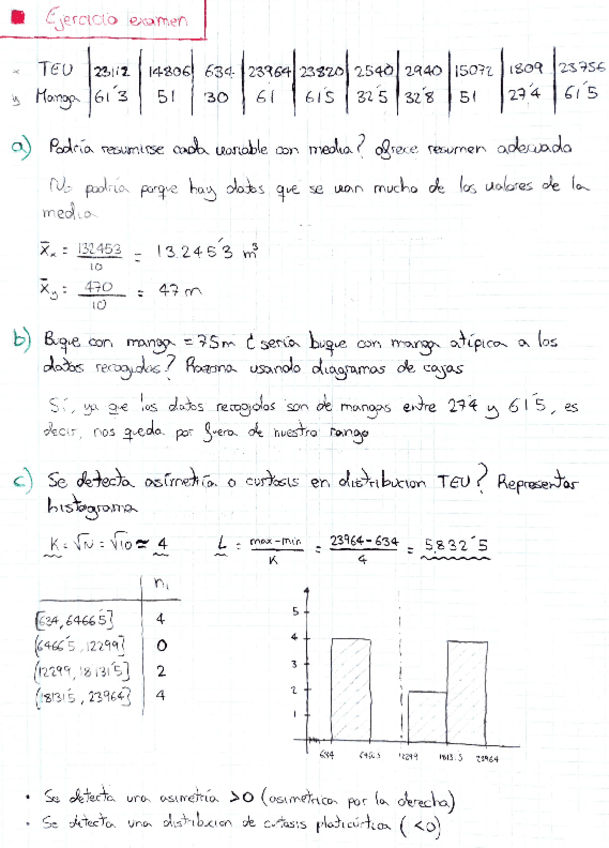 Ejercicio examen
x TEU 23112 14806 634 23964 23820 2540 2940 15072 1809 23756
y Manga 61'3 51 30 61 61'5 32'5 32'8 51 27'4 61'5
a) Podría resumirse cada variable con media? Ofrece resumen adecuado
No podría porque hay datos que se van mucho de los valores de la
media
x̄x = 132453/10 = 13.245'3 m³
x̄y = 470/10 = 47 m
b) Buque con manga = 75m ¿ sería buque con manga atípica a los
datos recogidos? Razona usando diagramas de cajas
Sí, ya que los datos recogidos son de mangas entre 27'4 y 61'5, es
decir, nos queda por fuera de nuestro rango
c) Se detecta asimetría o curtosis en distribucion TEU? Representar
histograma
K = √N = √10 ≈ 4 L = max-min/K = 23964-634/4 = 5832'5
ni
[634, 6466'5] 4
(6466'5, 12299] 0
(12299, 18131'5] 2
(18131'5, 23964] 4
5
4
3
2
1
634 6466.5 12299 1813.5 23964
• Se detecta una asimetría >0 (asimetrica por la derecha)
• Se detecta una distribucion de curtosis platicúrtica (<0)